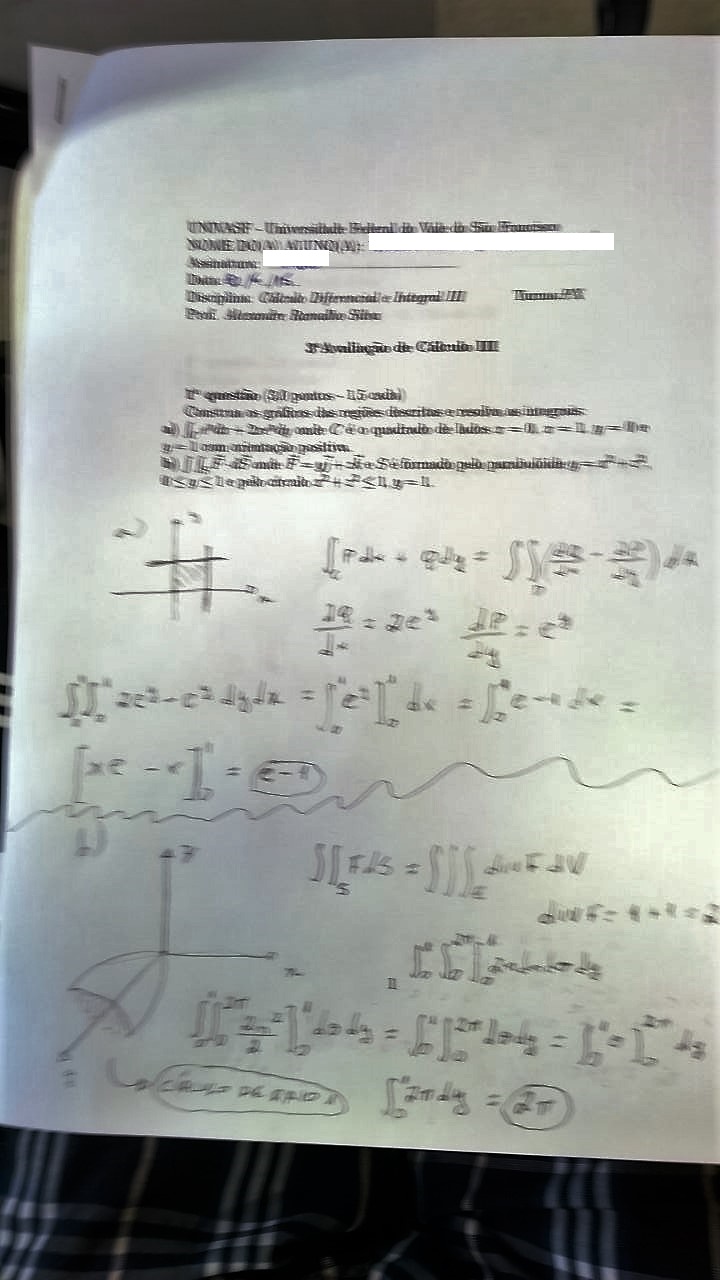 UNIVASF - Universidade Federal do Vale do São Francisco
NOME DO(A) ALUNO(A):
Assinatura:
Data:
Disciplina: Cálculo Diferencial e Integral III Turma:
Prof. Alexandre Ramalho Silva
3ª Avaliação de Cálculo III
1ª questão (3,0 pontos - 1,5 cada)
Construa os gráficos das regiões descritas e resolva as integrais:
a) ∫_C e^y dx + 2xe^y dy, onde C é o quadrado de lados x = 0, x = 1, y = 0 e
y = 1 com orientação positiva.
b) ∫∫_S F · dS onde F = yj + zk e S é formado pelo parabolóide y = x² + z²,
0 ≤ y ≤ 1 e pelo círculo x² + z² ≤ 1, y = 1.
a)
∫_C P dx + Q dy = ∫∫_D (∂Q/∂x - ∂P/∂y) dA
∂Q/∂x = 2e^y ∂P/∂y = e^y
∫_0^1 ∫_0^1 2e^y - e^y dy dx = ∫_0^1 e^y ]_0^1 dx = ∫_0^1 e - 1 dx =
[xe - x]_0^1 = e - 1
b)
z
∫∫_S F dS = ∫∫∫_E div F dV
div F = 1 + 1 = 2
∫_0^1 ∫_0^2π ∫_0^1 2r dr dθ dy
∫_0^1 ∫_0^2π 2r²/2 ]_0^1 dθ dy = ∫_0^1 ∫_0^2π dθ dy = ∫_0^1 θ ]_0^2π dy
∫_0^1 2π dy = 2π
DE RAIO 1